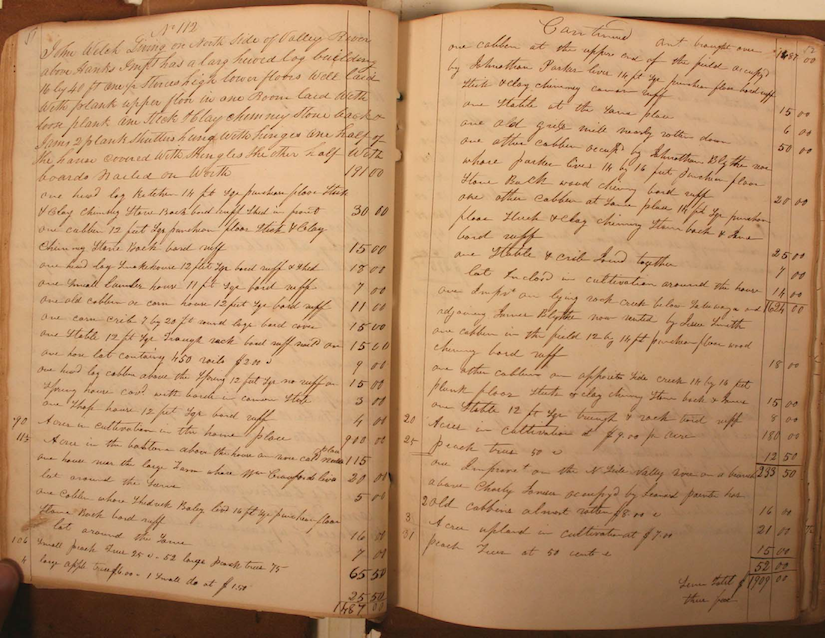 51
No 112
John Welch Living on North Side of Valley River
above Hanks Impt has a larg hewed log building
16 by 40 ft one ½ Stories high lower floors Well laid
With plank upper flor in one Room laid With
loose plank one Stick & Clay chimney Stone back &
Jams 2 plank Shutters hung With hinges one half of
the house covered With Shingles the other half With
boards Nailed on Worth 191 00
one hewd log Kitchen 14 ft Sqr puncheon floor Stick
& Clay chimney Stone Back bord ruff Shed in front 30 00
one cabbin 12 feet Sqr puncheon floor Stick & Clay
chimney Stone Back bord ruff 15 00
one hewd log Smokehouse 12 feet Sqr bord ruff & Shed 18 00
one Small lumber house 11 ft Sqr bord ruff 7 00
one old cabbin or corn house 12 feet Sqr bord ruff 11 00
one corn crib 7 by 20 ft round logs bord cover 15 00
one Stable 12 ft Sqr Trough rack bord ruff naild on 15 00
one horse lot containg 450 rails $2.00 c 9 00
one hewd log cabbin above the Spring 12 feet Sqr no ruff on 15 00
Spring house covd with bords in common Stile 3 00
one Shop house 12 feet Sqr bord ruff 4 00
90 Acres in cultivation in the home place 900 00
Acres in the bottom above the house a 115
one house near the large Farm where Wm Crawford lives 20 00
lot around the Same 5 00
one Cabbin where lived 16 ft Sqr puncheon floor
Stone Back bord ruff 16 00
lot around the Same 7 00
106 Small peach Trees 25 c - 52 large peach trees 75 65 50
4 large appl trees $6.00 - 1 Small do at $1.50 25 50
1487 00
52
Continued
amt brought over 1487 00
one cabben at the upper end of the field occupyd
by Johnathan Parker live 14 ft Sqr puncheon floor bord ruff
Stick & clay chimney common ruff 15 00
one Stable at the Same place 6 00
one old grist mill nearly rotten down 50 00
one other cabben occupd by Johnathan Blythe now
whare parker lives 14 by 16 feet puncheon floor
Stone Back wood chimney bord ruff 20 00
one other cabben at Same place 14 ft Sqr puncheon
floor Stick & Clay chimney Stone back & Jams
bord ruff 25 00
one Stable & crib Joind together 7 00
lot Inclosd in cultivation around the house 14 00
1624 00
one Impt on lying rock creek below and
adjoining James Blythe now rented by Jesse Smith
one cabben in the field 12 by 14 ft puncheon floor wood
chimney bord ruff 18 00
one other cabben on opposite Side creek 14 by 16 feet
plank floor Stick & clay chimney Stone back & Jams 15 00
one Stable 12 ft Sqr trough & rack bord ruff 8 00
20 Acres in cultivation at $9.00 pr acre 180 00
25 peach trees 50 c 12 50
233 50
one Improvet on the N Side Valley River on a branch
above Charly occupyd by has
2 old cabbins almost rotten $8.00 c 16 00
3 Acres upland in cultivation at $7.00 21 00
31 peach Trees at 50 cents c 15 00
52 00
total $ 1909 00